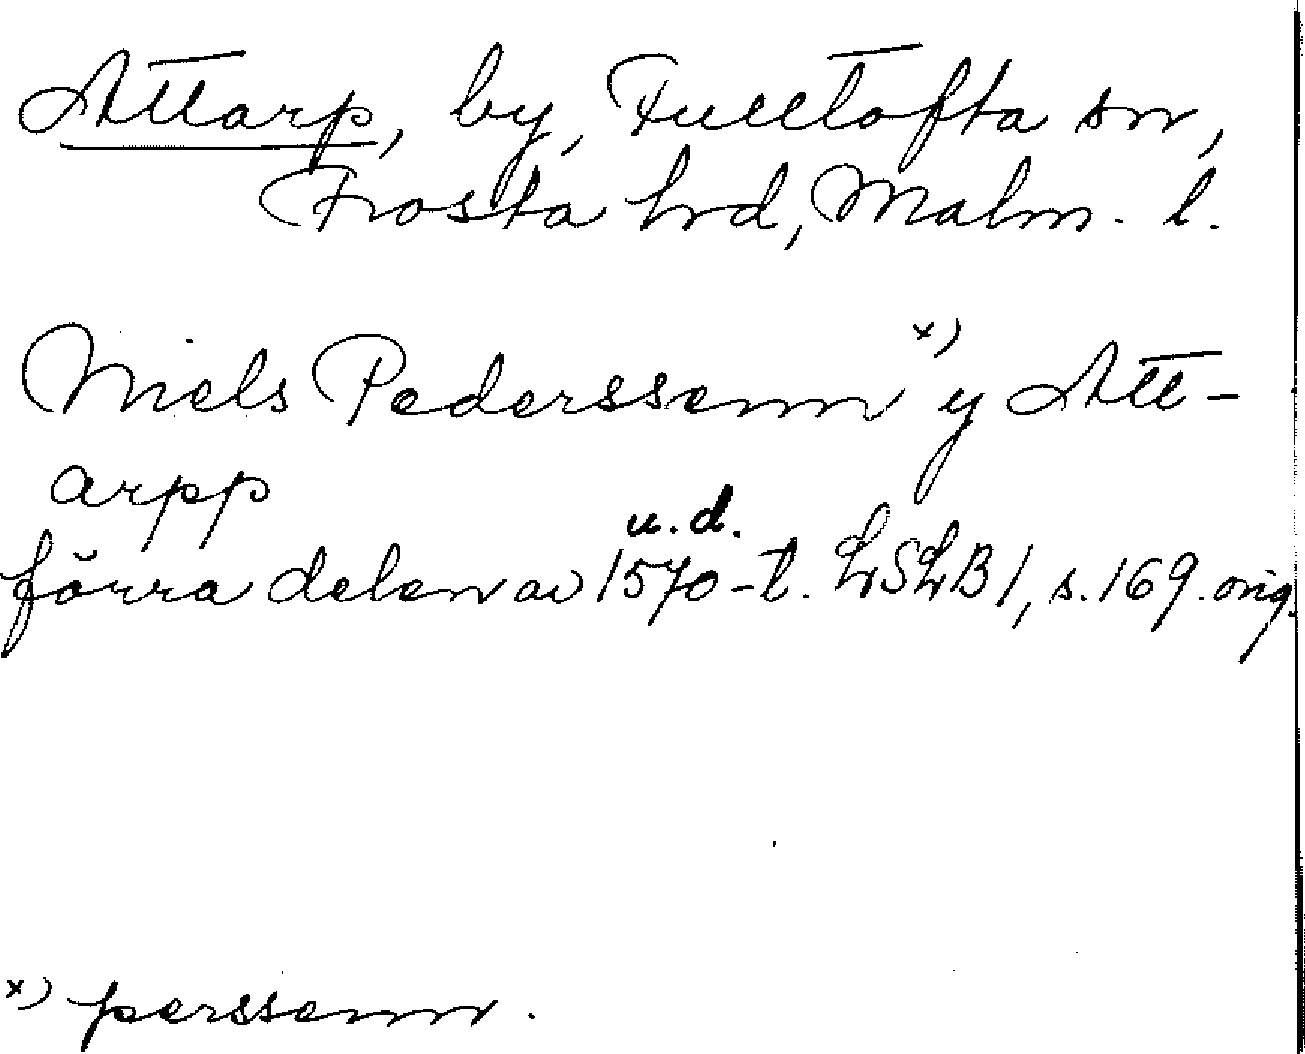 Attarp, by, Fulltofta sn,
Frosta hd, Malm. l.
Niels Pederssenn x) y Att-
arpp
u. d.
förra delen av 1570-t. LSLB1, s. 169. orig.
x) perssenn.